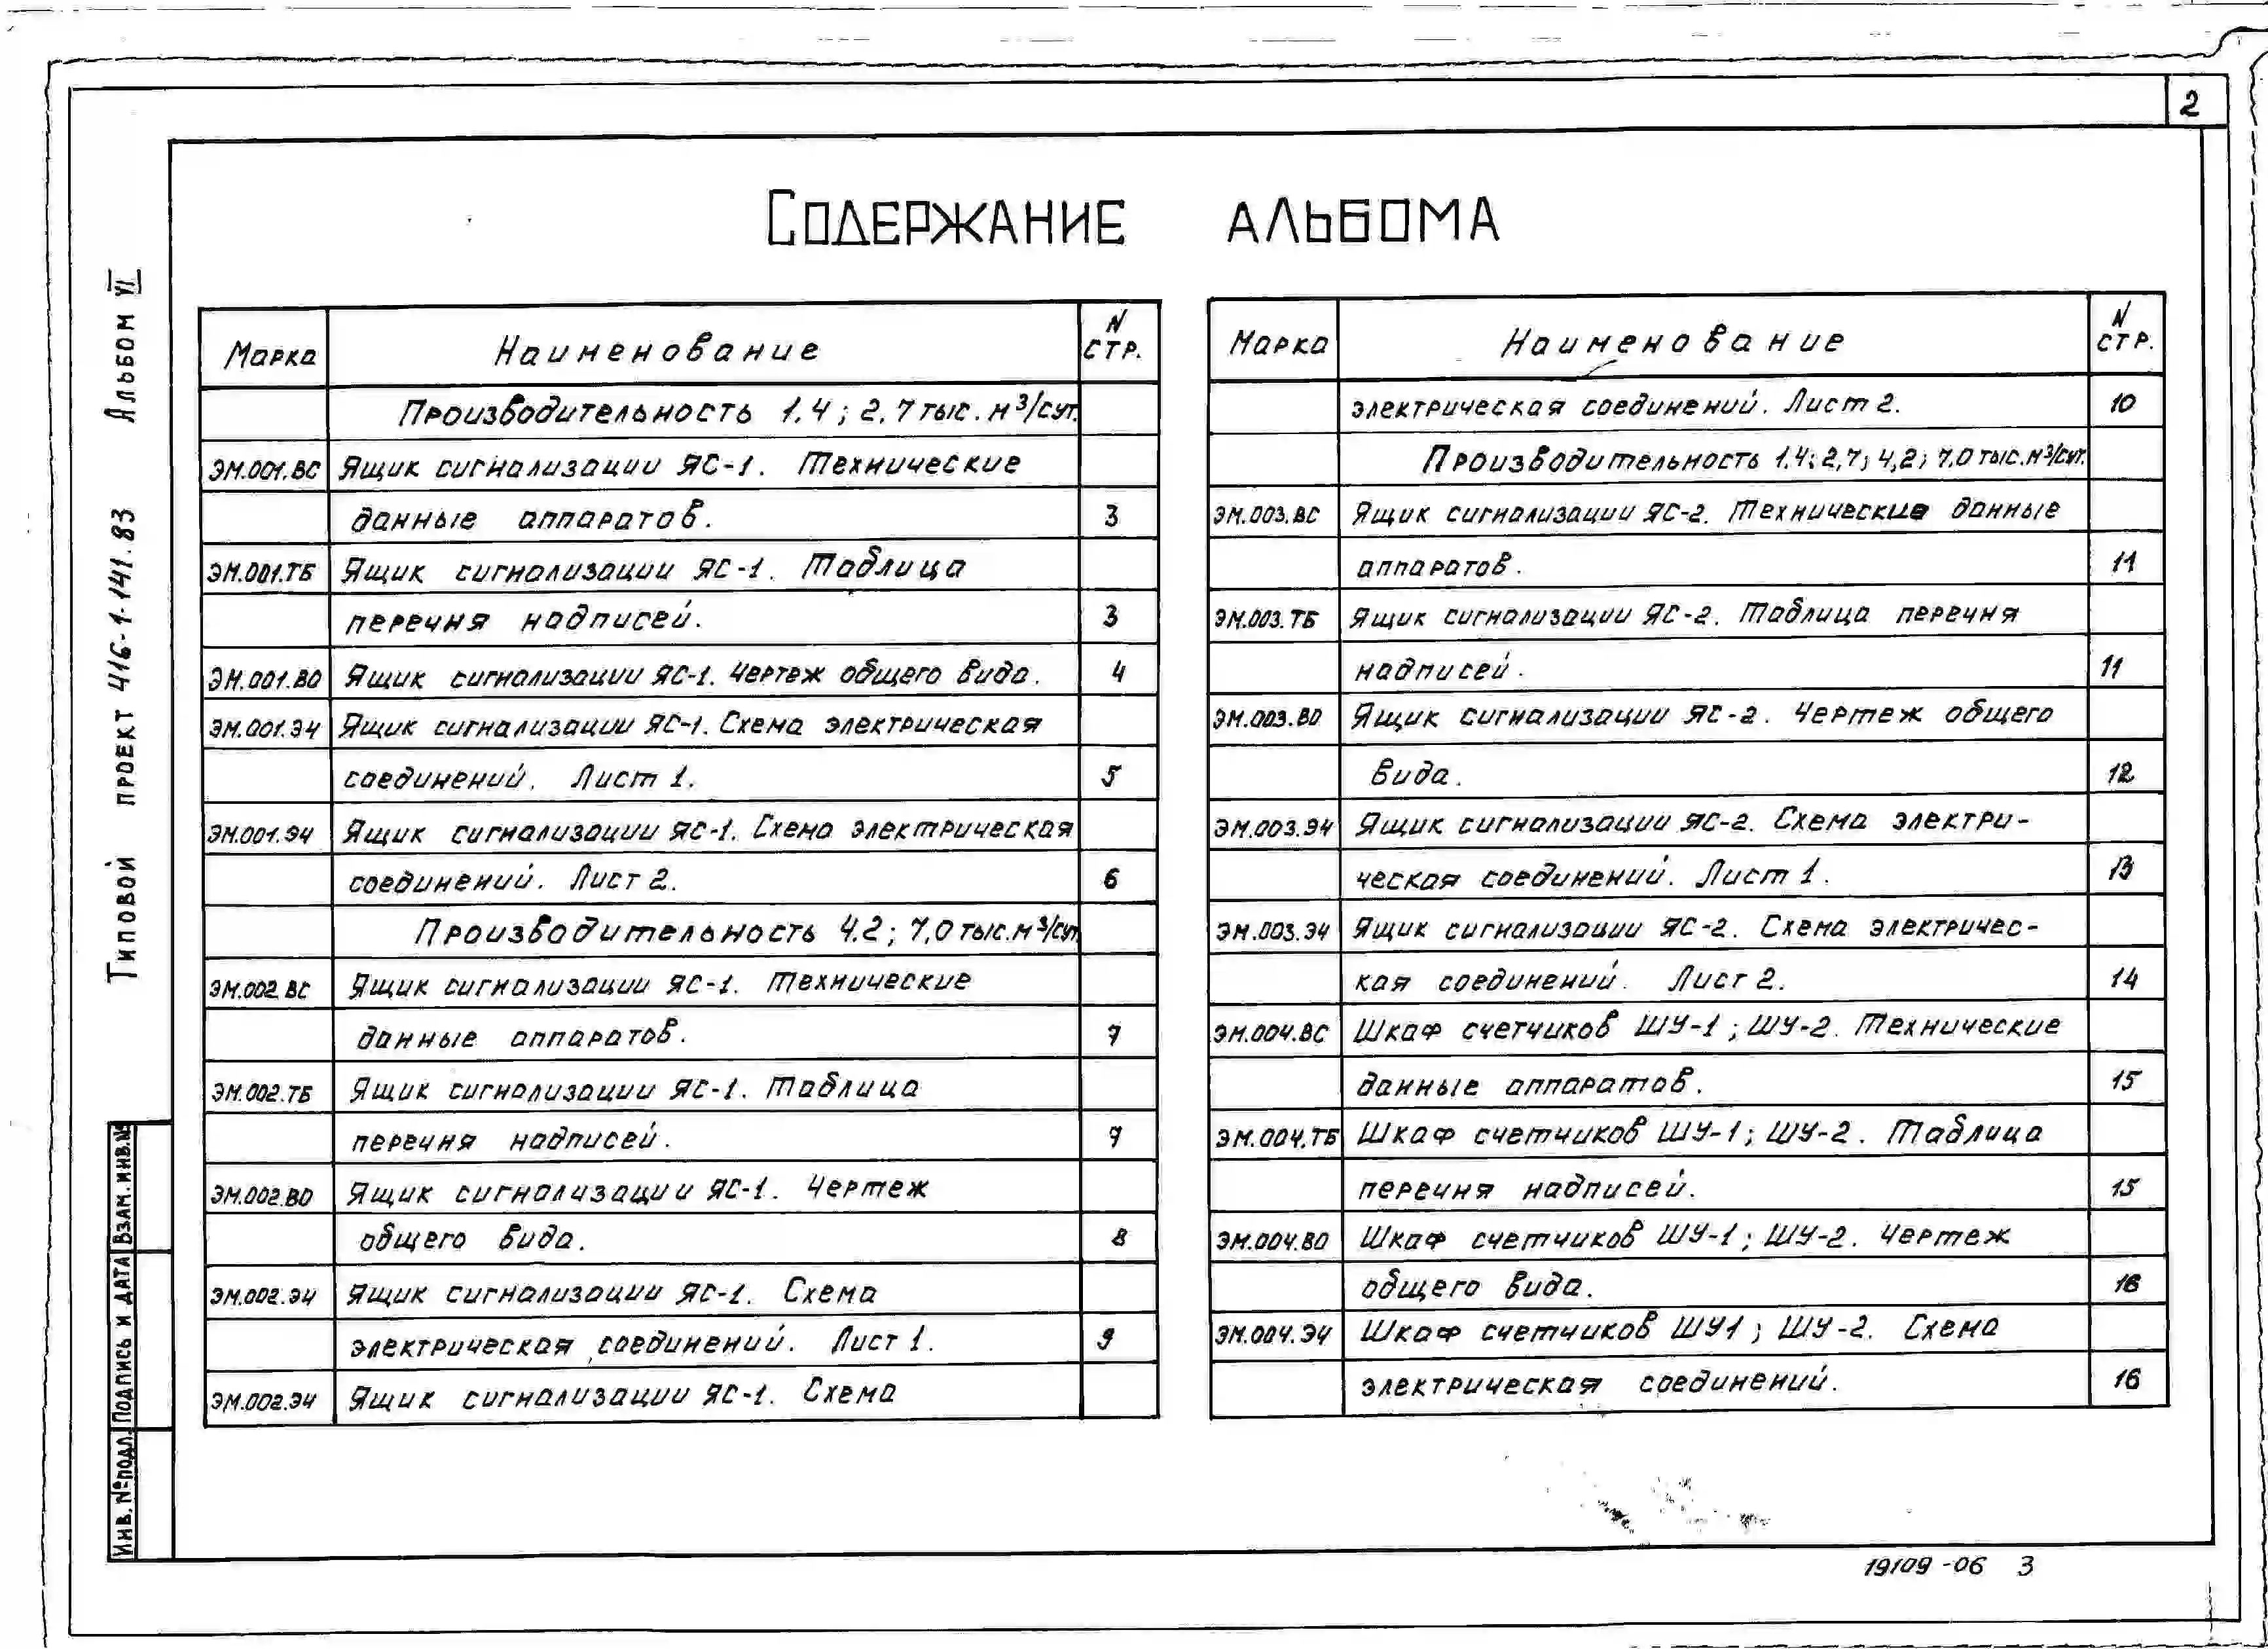 2
Содержание альбома
Типовой проект 416-1-141.83 Альбом VI
Марка Наименование N стр.
Производительность 1,4; 2,7 тыс. м³/сут.
ЭМ.001.ВС Ящик сигнализации ЯС-1. Технические
данные аппаратов. 3
ЭМ.001.ТБ Ящик сигнализации ЯС-1. Таблица
перечня надписей. 3
ЭМ.001.ВО Ящик сигнализации ЯС-1. Чертеж общего вида. 4
ЭМ.001.Э4 Ящик сигнализации ЯС-1. Схема электрическая
соединений. Лист 1. 5
ЭМ.001.Э4 Ящик сигнализации ЯС-1. Схема электрическая
соединений. Лист 2. 6
Производительность 4,2; 7,0 тыс. м³/сут
ЭМ.002.ВС Ящик сигнализации ЯС-1. Технические
данные аппаратов. 7
ЭМ.002.ТБ Ящик сигнализации ЯС-1. Таблица
перечня надписей. 7
ЭМ.002.ВО Ящик сигнализации ЯС-1. Чертеж
общего вида. 8
ЭМ.002.Э4 Ящик сигнализации ЯС-1. Схема
электрическая соединений. Лист 1. 9
ЭМ.002.Э4 Ящик сигнализации ЯС-1. Схема
Марка Наименование N стр.
электрическая соединений. Лист 2. 10
Производительность 1,4; 2,7; 4,2; 7,0 тыс. м³/сут.
ЭМ.003.ВС Ящик сигнализации ЯС-2. Технические данные
аппаратов. 11
ЭМ.003.ТБ Ящик сигнализации ЯС-2. Таблица перечня
надписей. 11
ЭМ.003.ВО Ящик сигнализации ЯС-2. Чертеж общего
вида. 12
ЭМ.003.Э4 Ящик сигнализации ЯС-2. Схема электри-
ческая соединений. Лист 1. 13
ЭМ.003.Э4 Ящик сигнализации ЯС-2. Схема электричес-
кая соединений. Лист 2. 14
ЭМ.004.ВС Шкаф счетчиков ШУ-1; ШУ-2. Технические
данные аппаратов. 15
ЭМ.004.ТБ Шкаф счетчиков ШУ-1; ШУ-2. Таблица
перечня надписей. 15
ЭМ.004.ВО Шкаф счетчиков ШУ-1; ШУ-2. Чертеж
общего вида. 16
ЭМ.004.Э4 Шкаф счетчиков ШУ1; ШУ-2. Схема
электрическая соединений. 16
Инв. № подл. Подпись и дата Взам. инв. №
19109-06 3